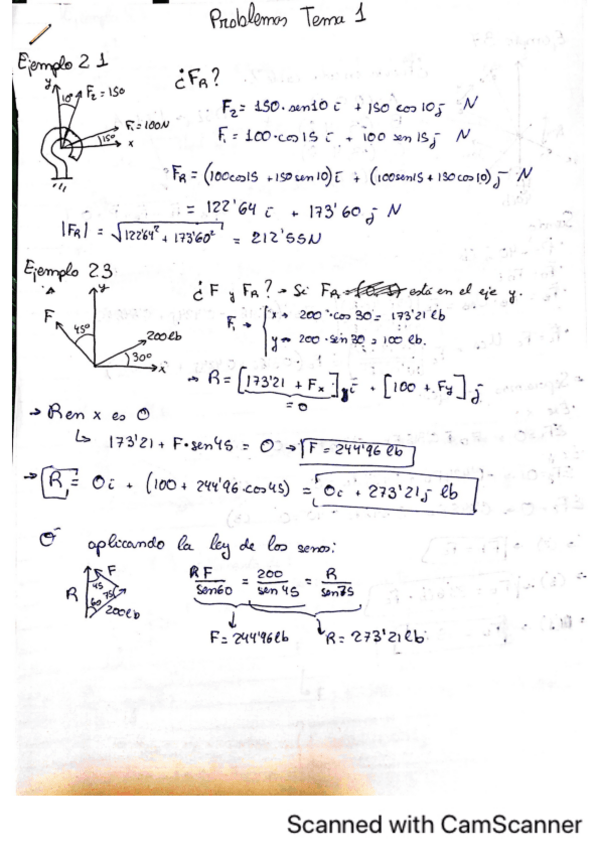 Problemas Tema 1
Ejemplo 2 1
¿FR?
y
10°
F2 = 150
F1 = 100N
15°
x
F2 = 150·sen10 i + 150 cos 10 j N
F1 = 100·cos15 i + 100 sen 15 j N
FR = (100cos15 + 150 sen 10) i + (100sen15 + 150 cos10) j N
= 122'64 i + 173'60 j N
|FR| = √122'64² + 173'60² = 212'55N
Ejemplo 23
¿F y FR? → Si FR está en el eje y.
y
F
45°
200lb
30°
x
F1 → x → 200·cos 30 = 173'21 lb
y → 200·sin 30 = 100 lb.
→ R = [173'21 + Fx] i + [100 + Fy] j
= 0
→ R en x es 0
↳ 173'21 + F·sen45 = 0 → F = 244'96 lb
→ R = 0i + (100 + 244'96·cos45) = 0i + 273'21 j lb
Ó aplicando la ley de los senos:
R
F
45
75
60
200lb
F/sen60 = 200/sen 45 = R/sen75
F = 244'96 lb
R = 273'21 lb
Scanned with CamScanner